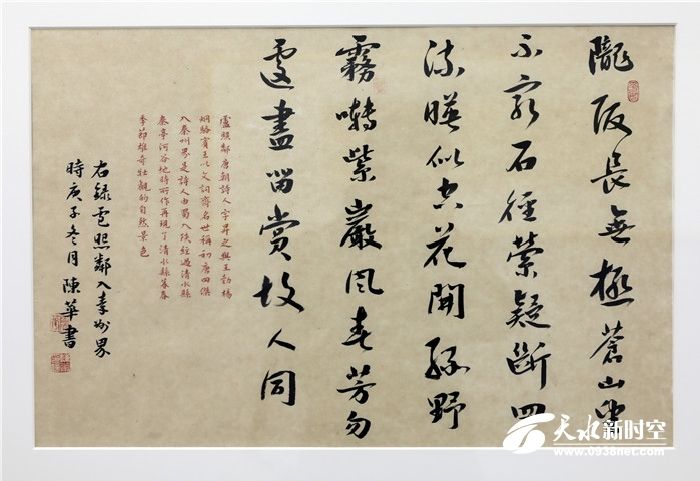 隴阪長無極蒼山望
不窮石徑縈疑斷回
流暎似空花開綠野
霧囀紫巖風春芳勿
遽盡留賞故人同
盧照鄰唐朝詩人字昇之與王勃楊
炯駱賓王以文詞齊名世稱初唐四傑
入秦州界是詩人由蜀入陝經過清水縣
秦亭河谷地時所作再現了清水縣暮春
季節雄奇壯觀的自然景色
右録盧照鄰入秦州界
時庚子冬月陳華書
天水新时空
www.0938net.com